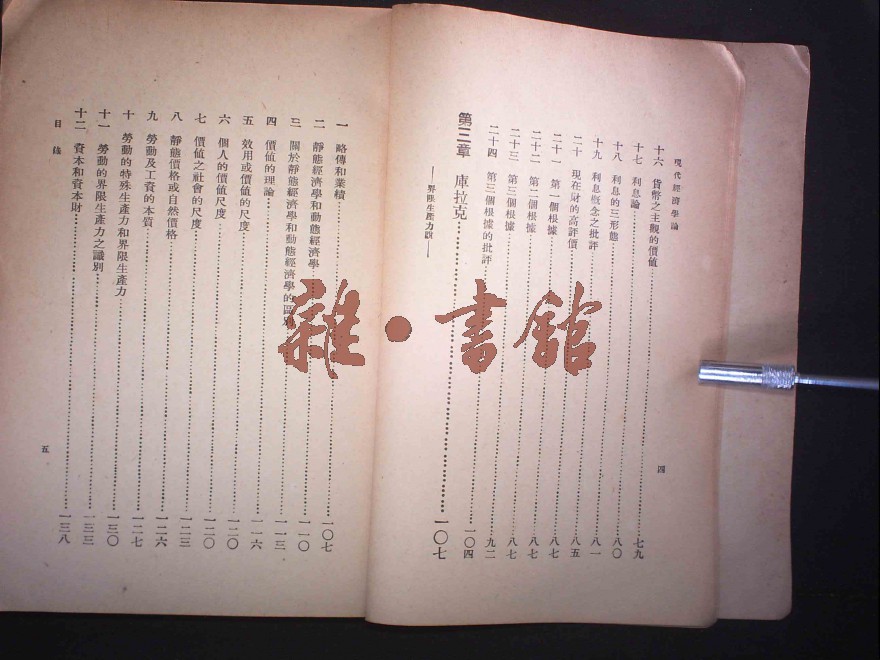 現代經濟學論
十六 貨幣之主觀的價値……七九
十七 利息論……八〇
十八 利息的三形態……八一
十九 利息概念之批評……八五
二十 現在財的高評價……八七
二十一 第一個根據……八七
二十二 第二個根據……八七
二十三 第三個根據……九二
二十四 第三個根據的批評……一〇四
第三章 庫拉克……一〇七
——界限生產力說——
四
一 略傳和業績……一〇七
二 靜態經濟學和動態經濟學……一一〇
三 關於靜態經濟學和動態經濟學的區別……一一三
四 價値的理論……一一六
五 效用或價値的尺度……一二〇
六 個人的價値尺度……一二〇
七 價値之社會的尺度……一二三
八 靜態價格或自然價格……一二六
九 勞動及工資的本質……一二七
十 勞動的特殊生產力和界限生產力……一三〇
十一 勞動的界限生產力之識別……一三三
十二 資本和資本財……一三八
目錄
五
雜·書館